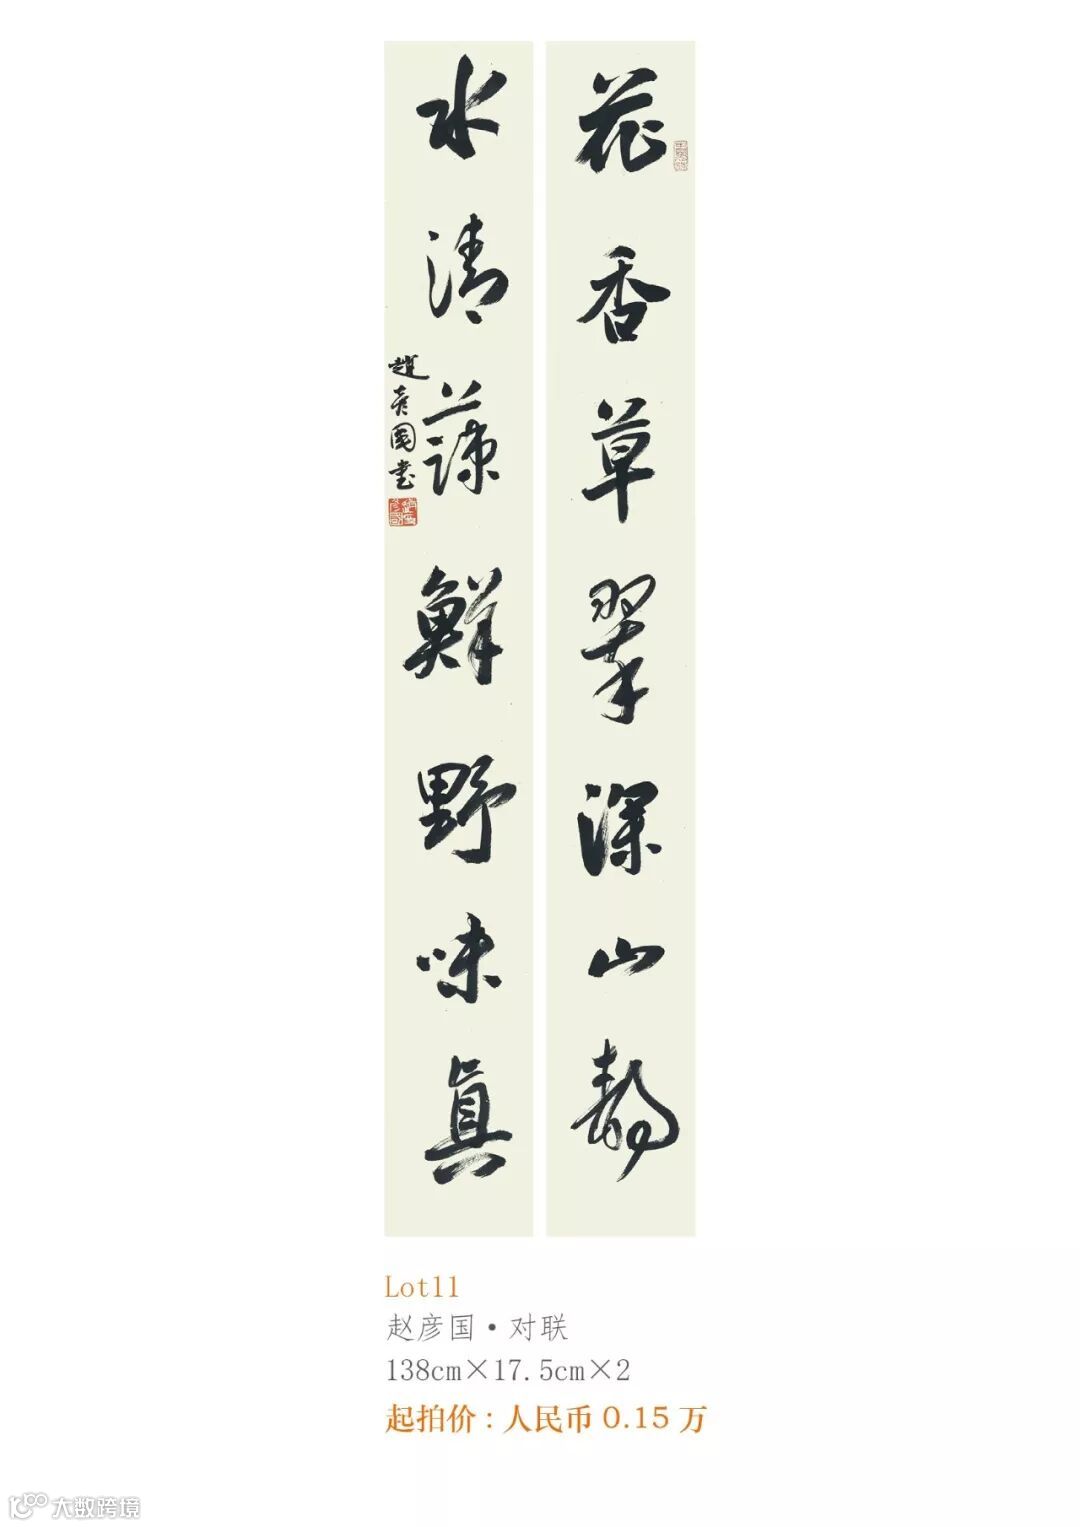 花香草翠深山静
水清蔬鮮野味真
趙彦國书
Lot11
赵彦国·对联
138cm×17.5cm×2
起拍价：人民币 0.15 万
大数跨境